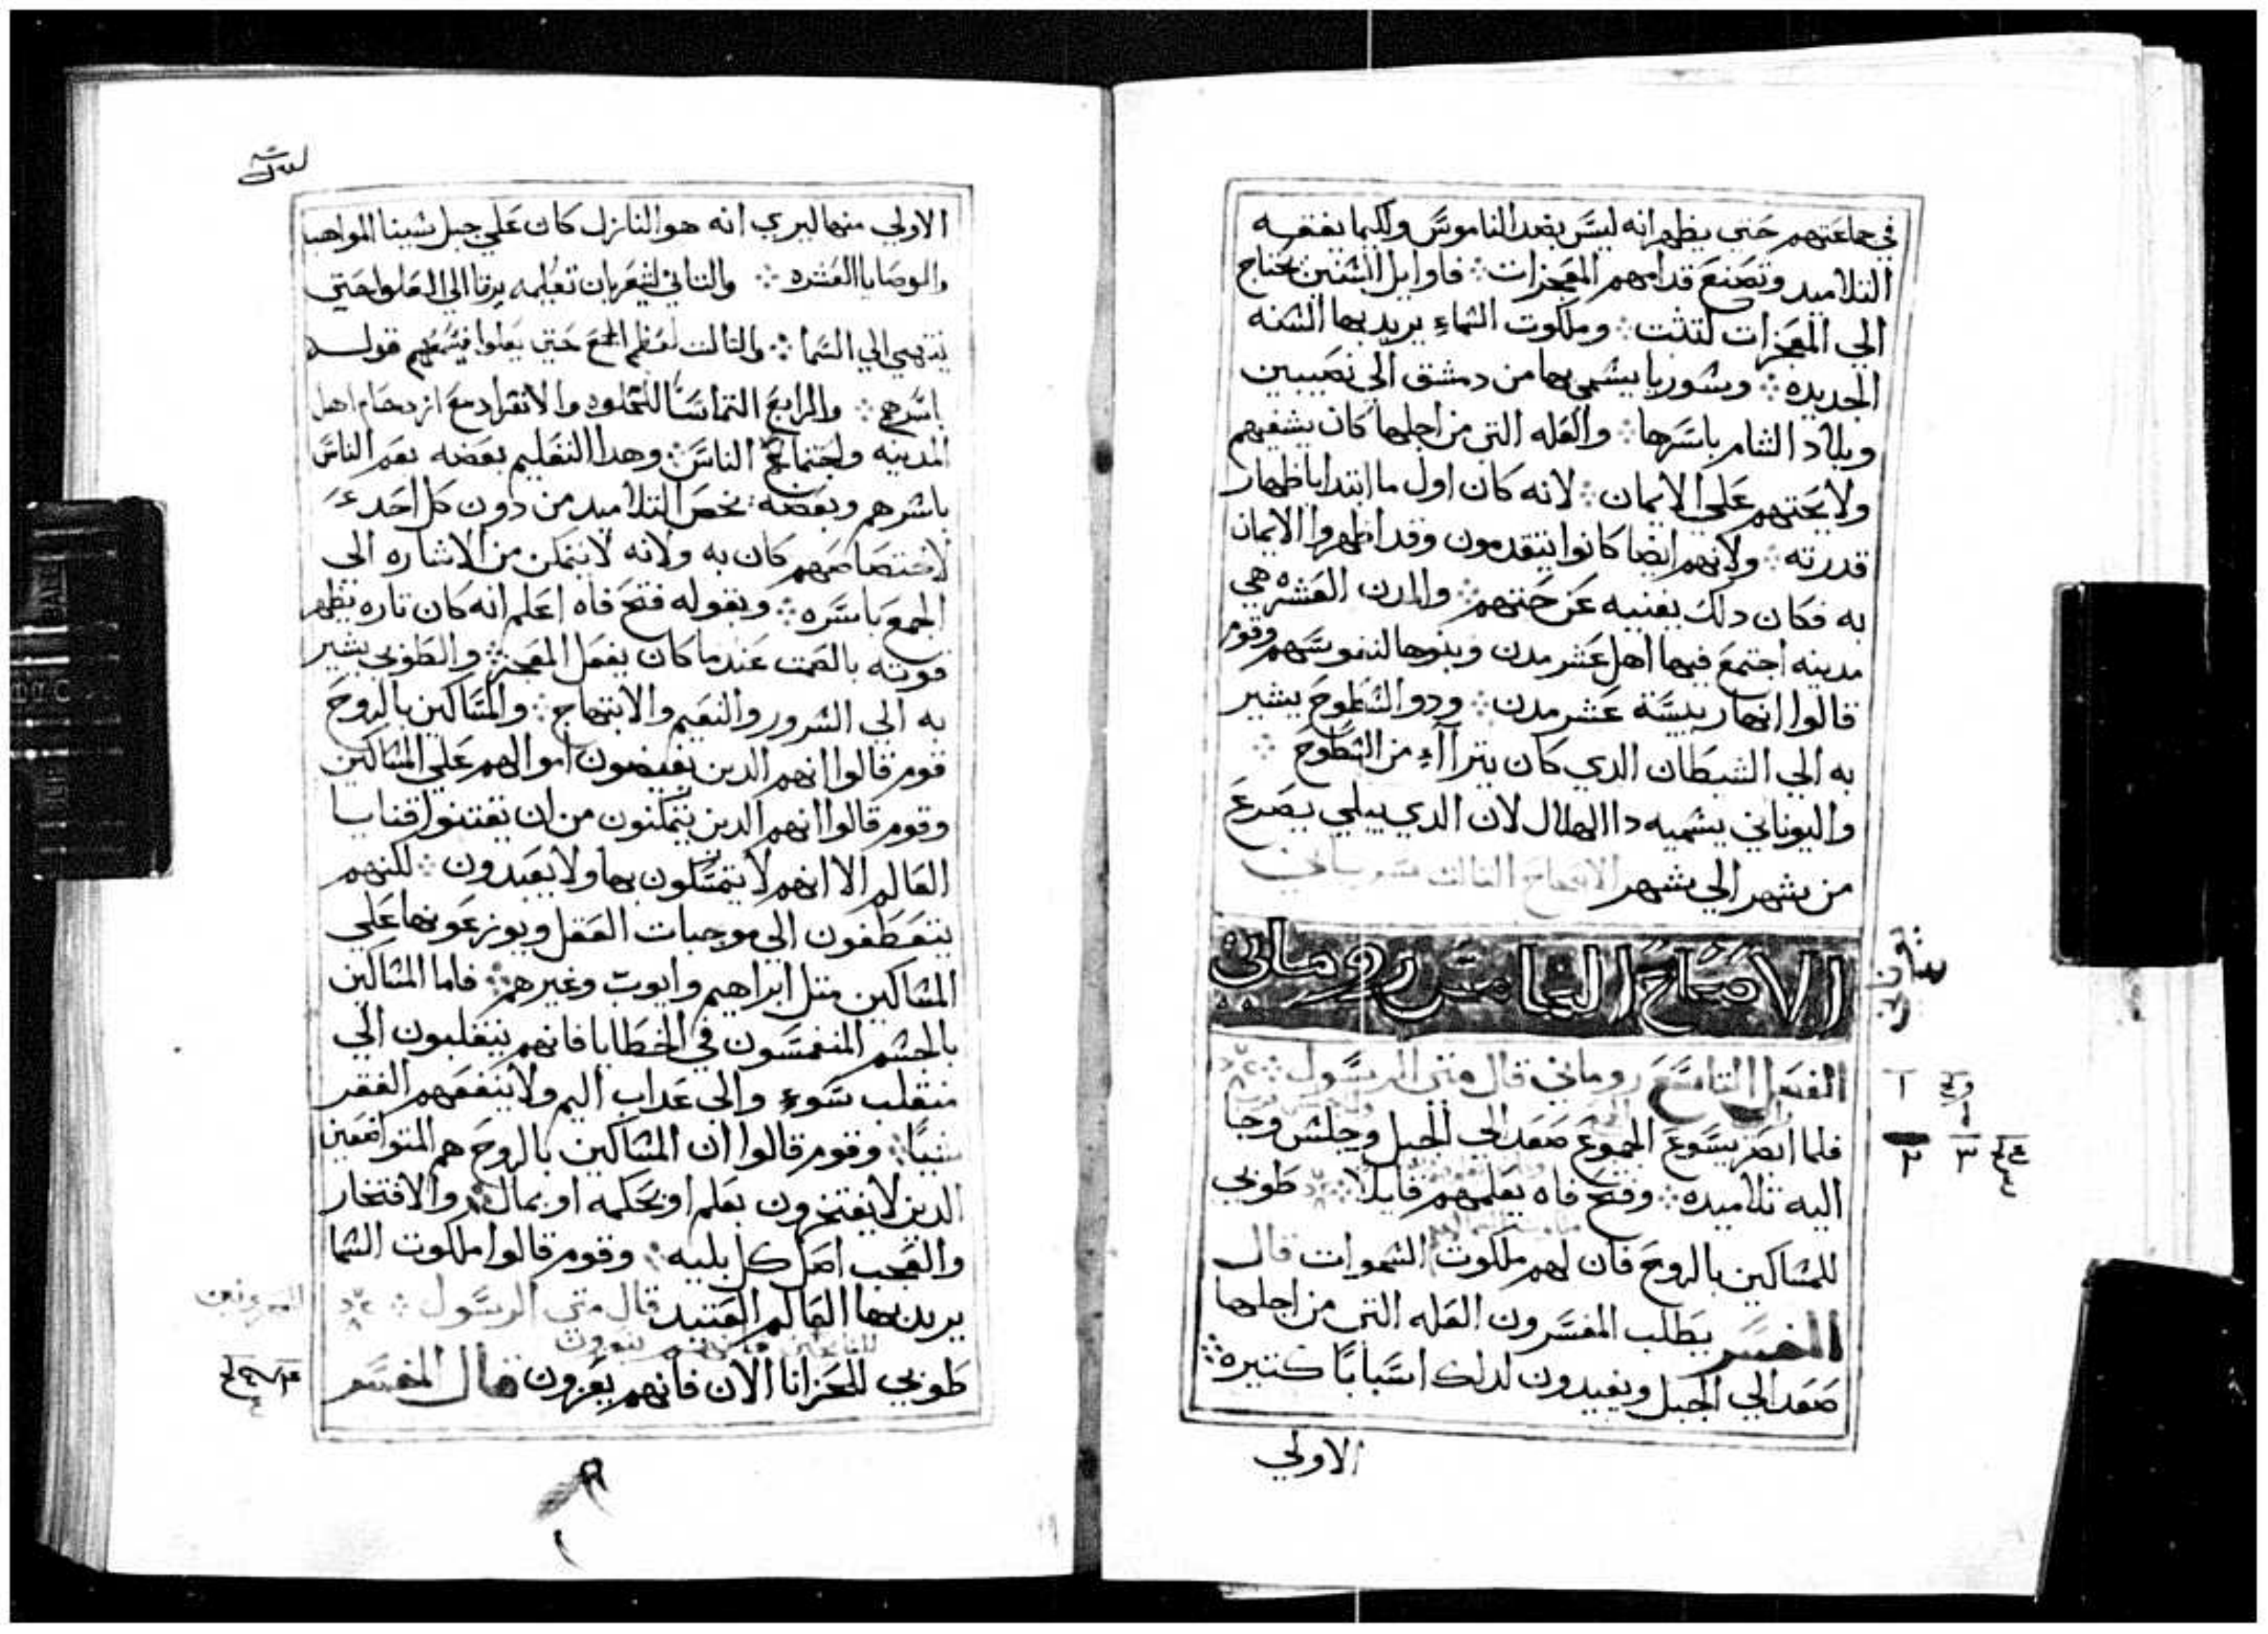 في جماعتهم حتى يظهر انه ليس بضد الناموس ولكيما يفقه
التلاميد وتصنع قدامهم المعجزات فاوايل السنن تحتاج
الي المعجزات لتتبت وملكوت السماء يريد بها السنه
الجديده وسوريا يسمي بها من دمشق الي نصيبين
وبلاد الشام باسرها والعله التي من اجلها كان يشفيهم
ولا يحتهم علي الايمان لانه كان اول ما ابتدا باظهار
قدرته ولانهم ايضا كانوا يتقدمون وقد اظهروا الايمان
به فكان دلك يغنيه عن حتهم والمدن العشره هي
مدينه اجتمع فيها اهل عشر مدن وبنوها لنفوسهم وقوم
قالوا انها رييسة عشر مدن ودو السطوح يشير
به الي الشيطان الدي كان يتراآء من السطوح
واليوناني يسميه دا الهلال لان الدي يبلي بصرع
من شهر الي شهر الاصحاح التالت سرياني
الاصحاح الخامس روماني
يوناني
الفصل التاسع روماني قال متي الرسول
فلما ابصر يسوع الجموع صعد الي الجبل وجلس وجا
اليه تلاميده وفتح فاه يعلمهم قايلا طوبي
للمساكين بالروح فان لهم ملكوت السموات قال
المفسر يطلب المفسرون العله التي من اجلها
صعد الي الجبل ويفيدون لدلك اسبابا كتيره
الاولي
الاولي منها ليري انه هو النازل كان علي جبل سينا المواهب
والوصايا العشره والتاني ليشعر بان تعليمه يرقا الي العلو حتي
ينتهي الي السما والتالت لعظم الجمع حتي يعلوا فيسمعهم قوله
باسرهم والرابع التماسا للخلود والانفراد مع ازدحام اهل
المدينه واجتماع الناس وهدا التعليم بعضه يعم الناس
باسرهم وبعضه يخص التلاميد من دون كل احد
لاختصاصهم كان به ولانه لا يتمكن من الاشاره الي
الجمع باسره وبقوله فتح فاه اعلم انه كان تاره يظهر
قوته بالصمت عندما كان يفعل المعجز والطوبي يشير
به الي السرور والنعيم والابتهاج والمساكين بالروح
قوم قالوا انهم الدين يفيضون اموالهم علي المساكين
وقوم قالوا انهم الدين يتمكنون من ان يقتنوا قنايا
العالم الا انهم لا يتمسكون بها ولا يعبدون لكنهم
يتعطفون الي موجبات العقل ويوزعونها علي
المساكين متل ابراهيم وايوب وغيرهم فاما المساكين
بالجسم المنغمسون في الخطايا فانهم ينقلبون الي
منقلب سوء والي عداب اليم ولا ينفعهم الفقر
شيا وقوم قالوا ان المساكين بالروح هم المتواضعين
الدين لا يفتخرون بعلم او بحكمه او بمال والافتخار
والعجب اصل كل بليه وقوم قالوا ملكوت السما
يريد بها العالم العتيد قال متي الرسول
طوبي للحزانا الان فانهم يعزون قال المفسر